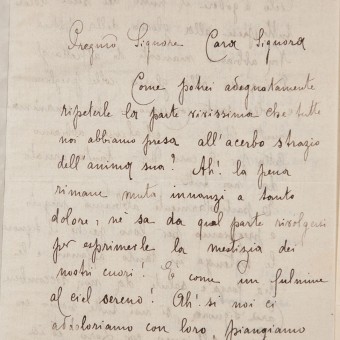 Pregmo Signore Cara Signora
Come potrei adeguatamente
ripeterle la parte vivissima che tutte
noi abbiamo presa all'acerbo strazio
dell'anima sua? Ah! la pena
rimane muta innanzi a tanto
dolore, nè sa da qual parte rivolgersi
per esprimerle la mestizia dei
nostri cuori! È come un fulmine
al ciel sereno! Ah! si noi ci
addoloriamo con loro, piangiamo